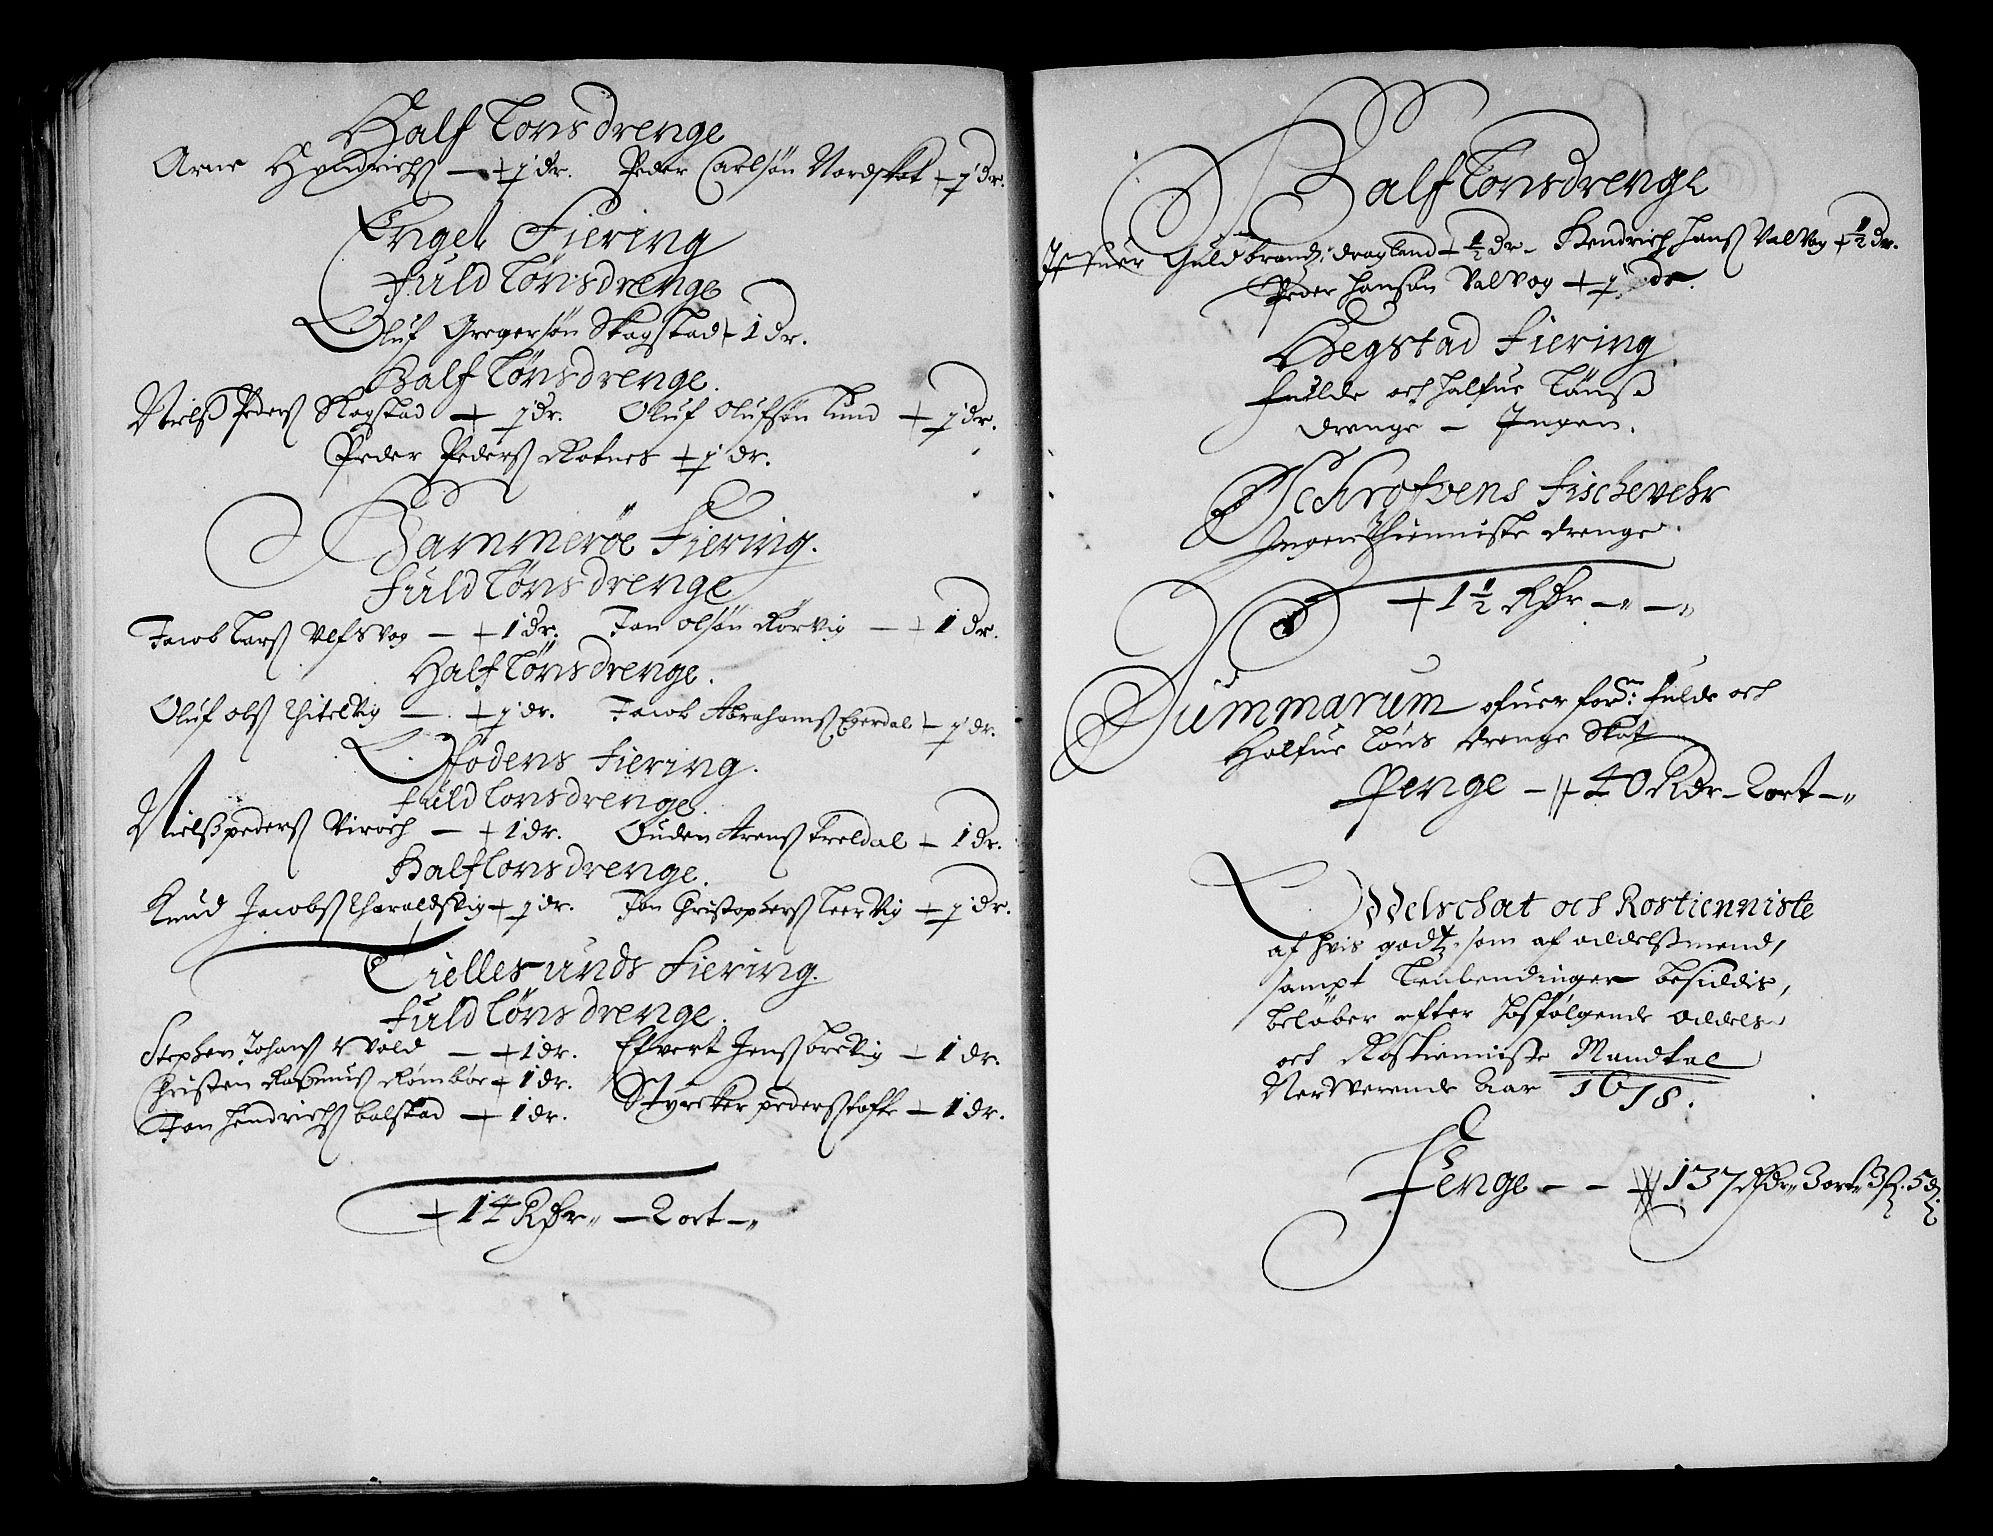 Half Lønsdrenge
Arne Hendrichs – + ½ dr. Peder Carlsøn Nordskot + ½ dr.
Engel Fiering
Fuld Lønsdrenge
Oluf Gregersøn Skagstad + 1 dr.
Half Lønsdrenge.
Nielß Peders Skagstad – + ½ dr. Oluf Olufsøn Lund + ½ dr.
Peder Peders Rotnes + ½ dr.
Hammerøe Fiering.
Fuld Lønsdrenge
Jacob Lars Ulfsvog – + 1 dr. Jon Olsøn Korvig – + 1 dr.
Half Lønsdrenge.
Oluf Ols – + ½ dr. Jacob Abrahams Egerdal + ½ dr.
Ofodens Fiering.
Fuld Lønsdrenge.
Nielß Peders Viroch – + 1 dr. Ouden Arens Treldal + 1 dr.
Half Lønsdrenge.
Knud Jacobs Tharaldsvig + ½ dr. Jon Christophers Leervig + ½ dr.
Tiellesunds Fiering.
Fuld Lønsdrenge.
Stephen Johans Vold – + 1 dr. Efvert Jens Brevig + 1 dr.
Christen Rasmus Rømboe + 1 dr. Styrcker Peders + 1 dr.
Jon Hendrichs Balstad + 1 dr.
+ 14 Rdr – 2 ort –
Half Lønsdrenge
Guldbrands Dragland + ½ dr – Hendrich Hans Valvog + ½ dr.
Peder Hansøn Valvog + ½ dr.
Hegstad Fiering.
Fulde och halfue Lønß
drenge – Ingen.
Schrofvens Fischevehr
Ingen thienniste drenge.
+ 1½ Rdr – –
Summarum ofuer for.ne fulde och
Halfue Løns drenge Skat
Penge – + 40 Rdr – 2 ort –
Oddelschat och Rostienniste
af hvis godtz som af oddelßmend,
sampt Leulendinger besiddis,
beløber efter hosfølgende oddels
och Rostienniste Mandtal
Nerwerende Aar 1678.
Penge – – + 137 Rdr 3 ort 3 ß. 5 d.